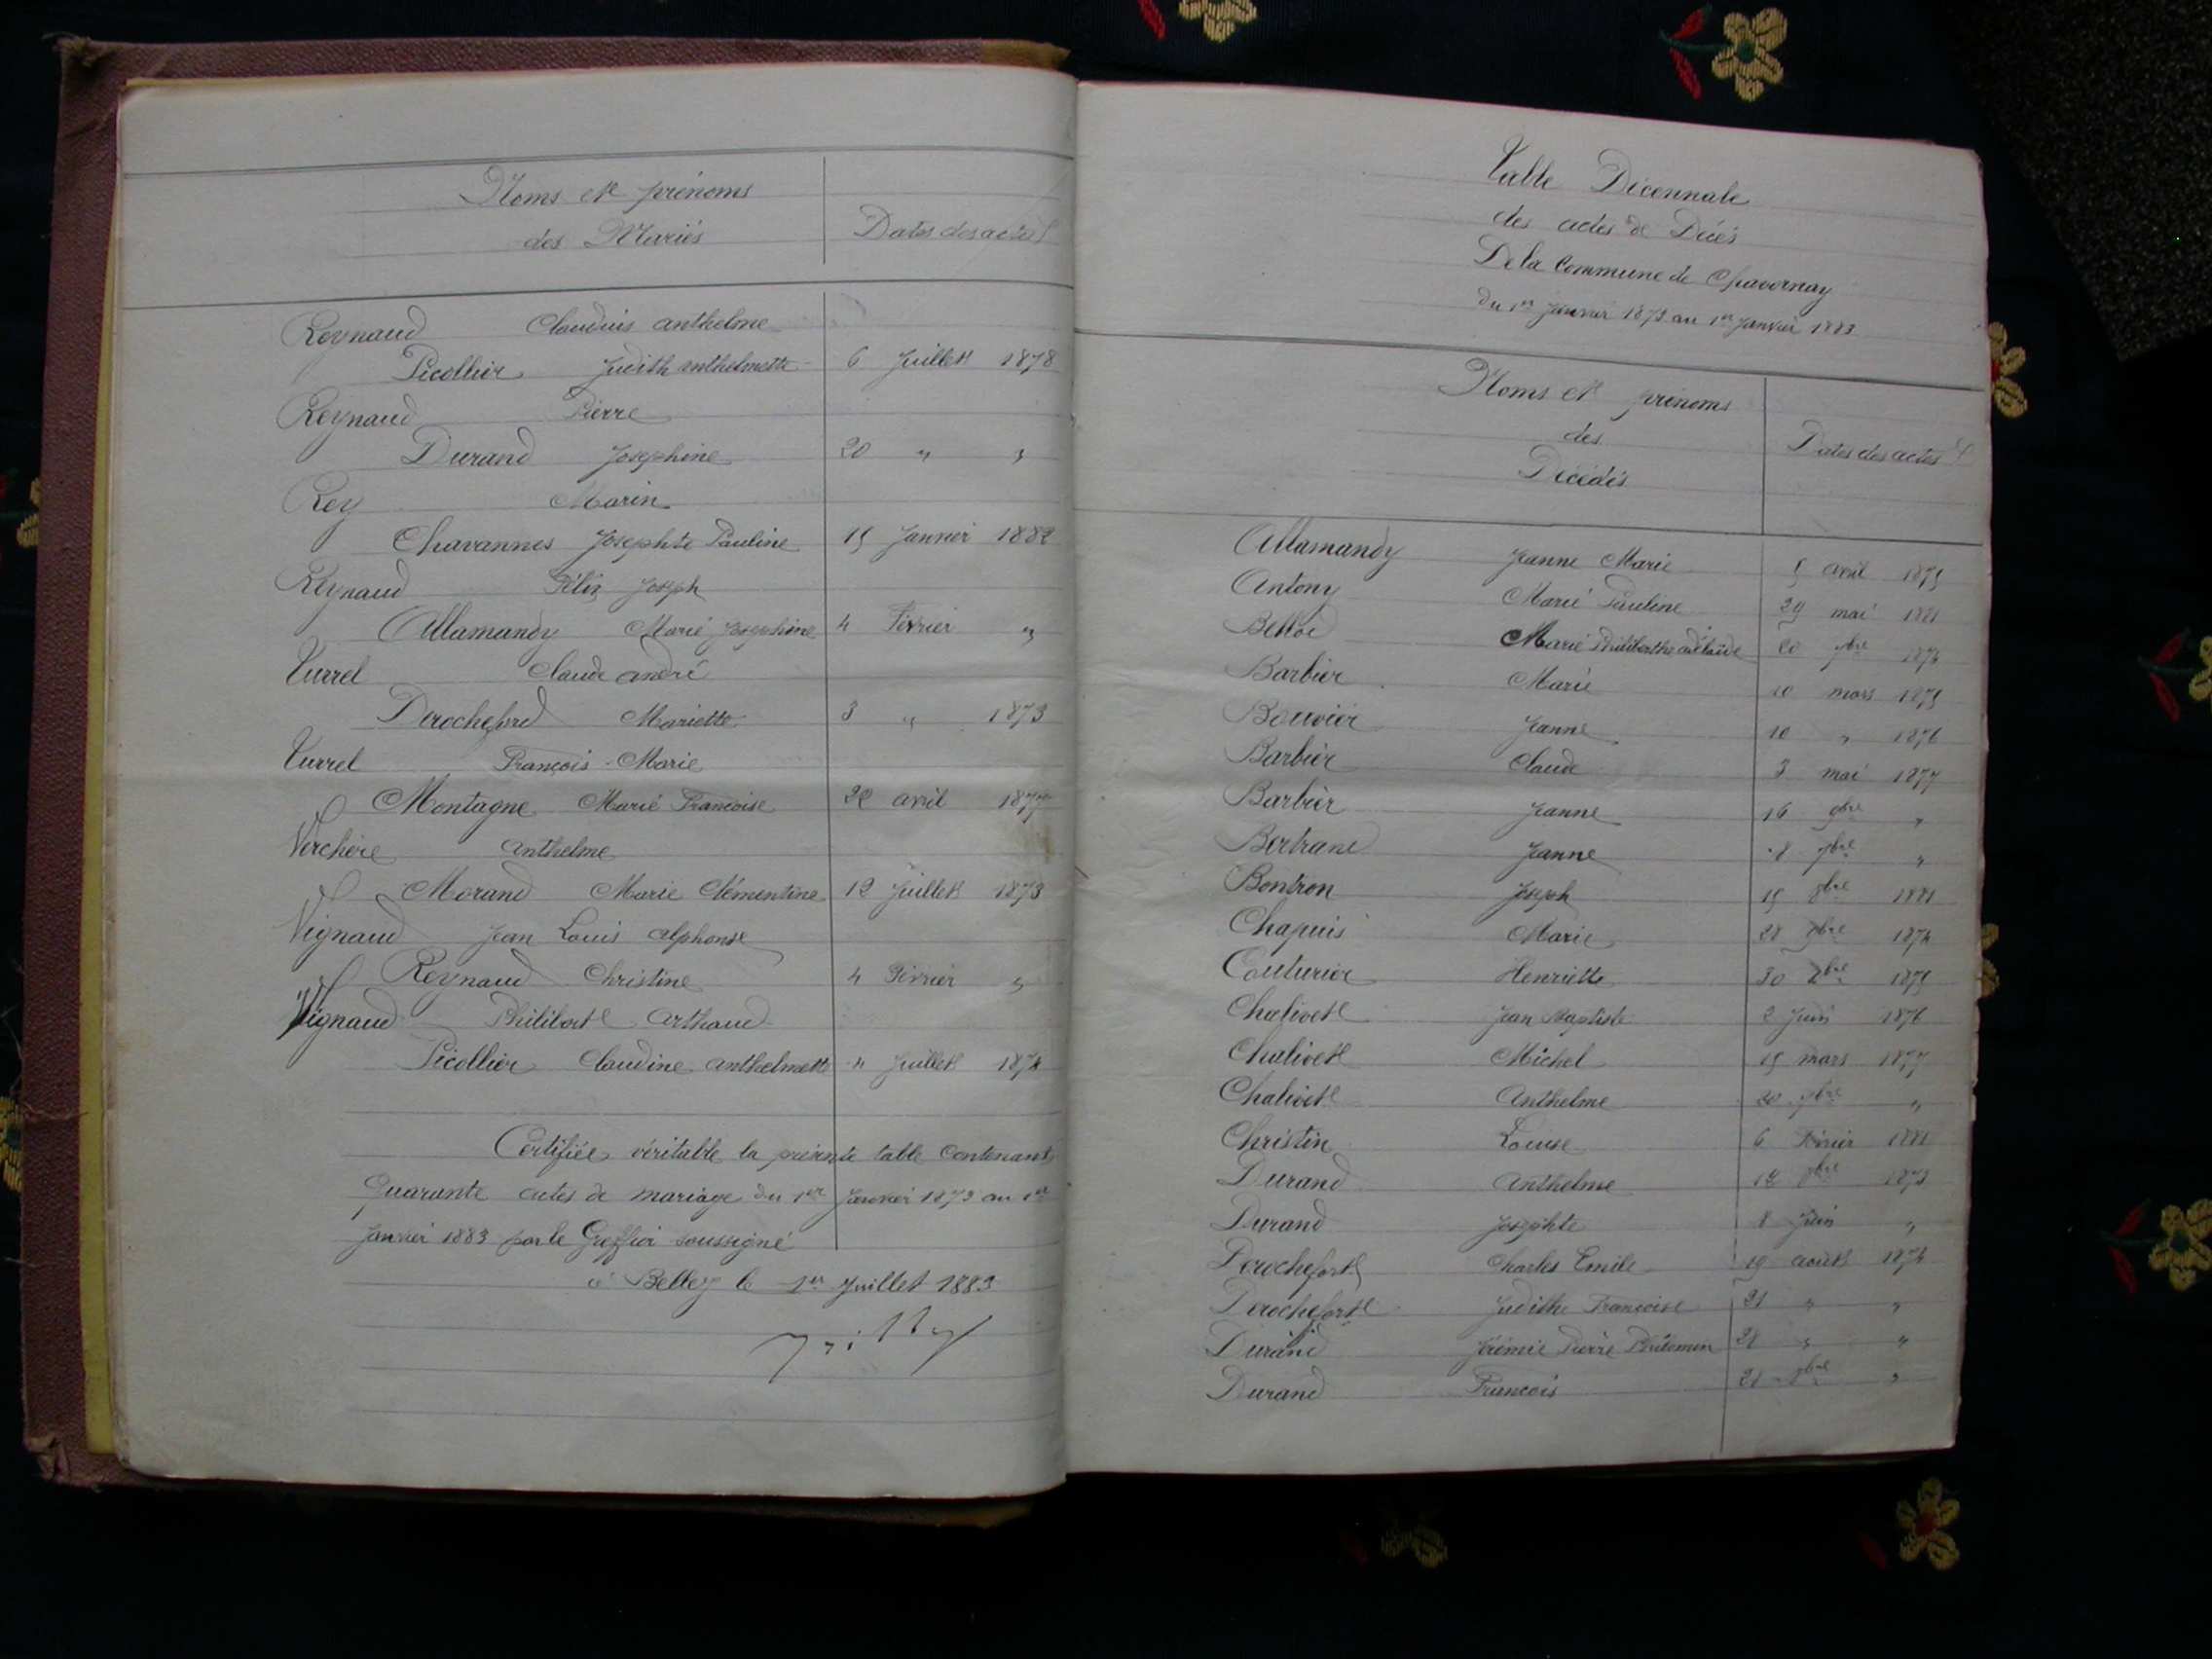 Noms et prénoms
des Mariés
Dates des actes
Reynaud Claudius anthelme
Picollier Judith anthelmette 6 Juillet 1878
Reynaud Pierre
Durand Josephine 20 " "
Rey Marin
Chavannes Josephte Pauline 15 Janvier 1882
Reynaud Félix Joseph
Allamandy Marie Josephine 4 Février "
Turrel Claude andré
Derochefort Mariette 3 " 1873
Turrel François-Marie
Montagne Marie Francoise 22 avril 1877
Verchère anthelme
Morand Marie Clémentine 12 Juillet 1873
Vignaud Jean Louis alphonse
Reynaud Christine 4 Février "
Vignaud Philibert arthaud
Picollier Claudine anthelmette 4 Juillet 1874
Certifiée véritable la présente table contenant
Quarante actes de mariage du 1er Janvier 1873 au 1er
Janvier 1883 par le Greffier soussigné
à Belley le 1er Juillet 1883
Table Décennale
des actes de Décès
De la Commune de Chavornay
du 1er Janvier 1873 au 1er Janvier 1883
Noms et prénoms
des
Décédés
Dates des actes
Allamandy Jeanne Marie 5 avril 1875
Antony Marie Pauline 29 mai 1881
Marie Philiberthe adélaïde 20 1874
Barbier Marie 10 mars 1875
Bouvier Jeanne 10 " 1876
Barbier Claude 3 mai 1877
Barbier Jeanne 16 9bre "
Bertrand Jeanne 8 7bre "
Bontron Joseph 15 8bre 1881
Chapuis Marie 28 9bre 1874
Couturier Henriette 30 1875
Chalivet Jean Baptiste 2 Juin 1876
Chalivet Michel 15 mars 1877
Chalivet Anthelme 20 9bre "
Christin Louise 6 Février 1882
Durand Anthelme 12 1873
Durand Josephte 8 Juin "
Derochefort Charles Emile 19 août 1874
Derochefort Judithe Francoise 21 " "
Durand Jérémie Pierre Philomin 28 " "
Durand Francois 21 "